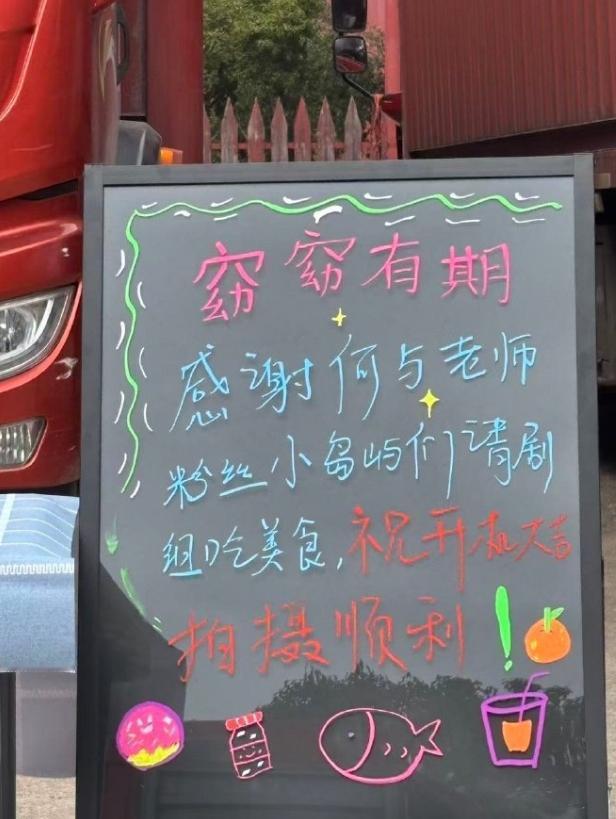 窈窈有期
感谢何与老师
粉丝小岛屿们请剧
组吃美食,祝开机大吉
拍摄顺利!